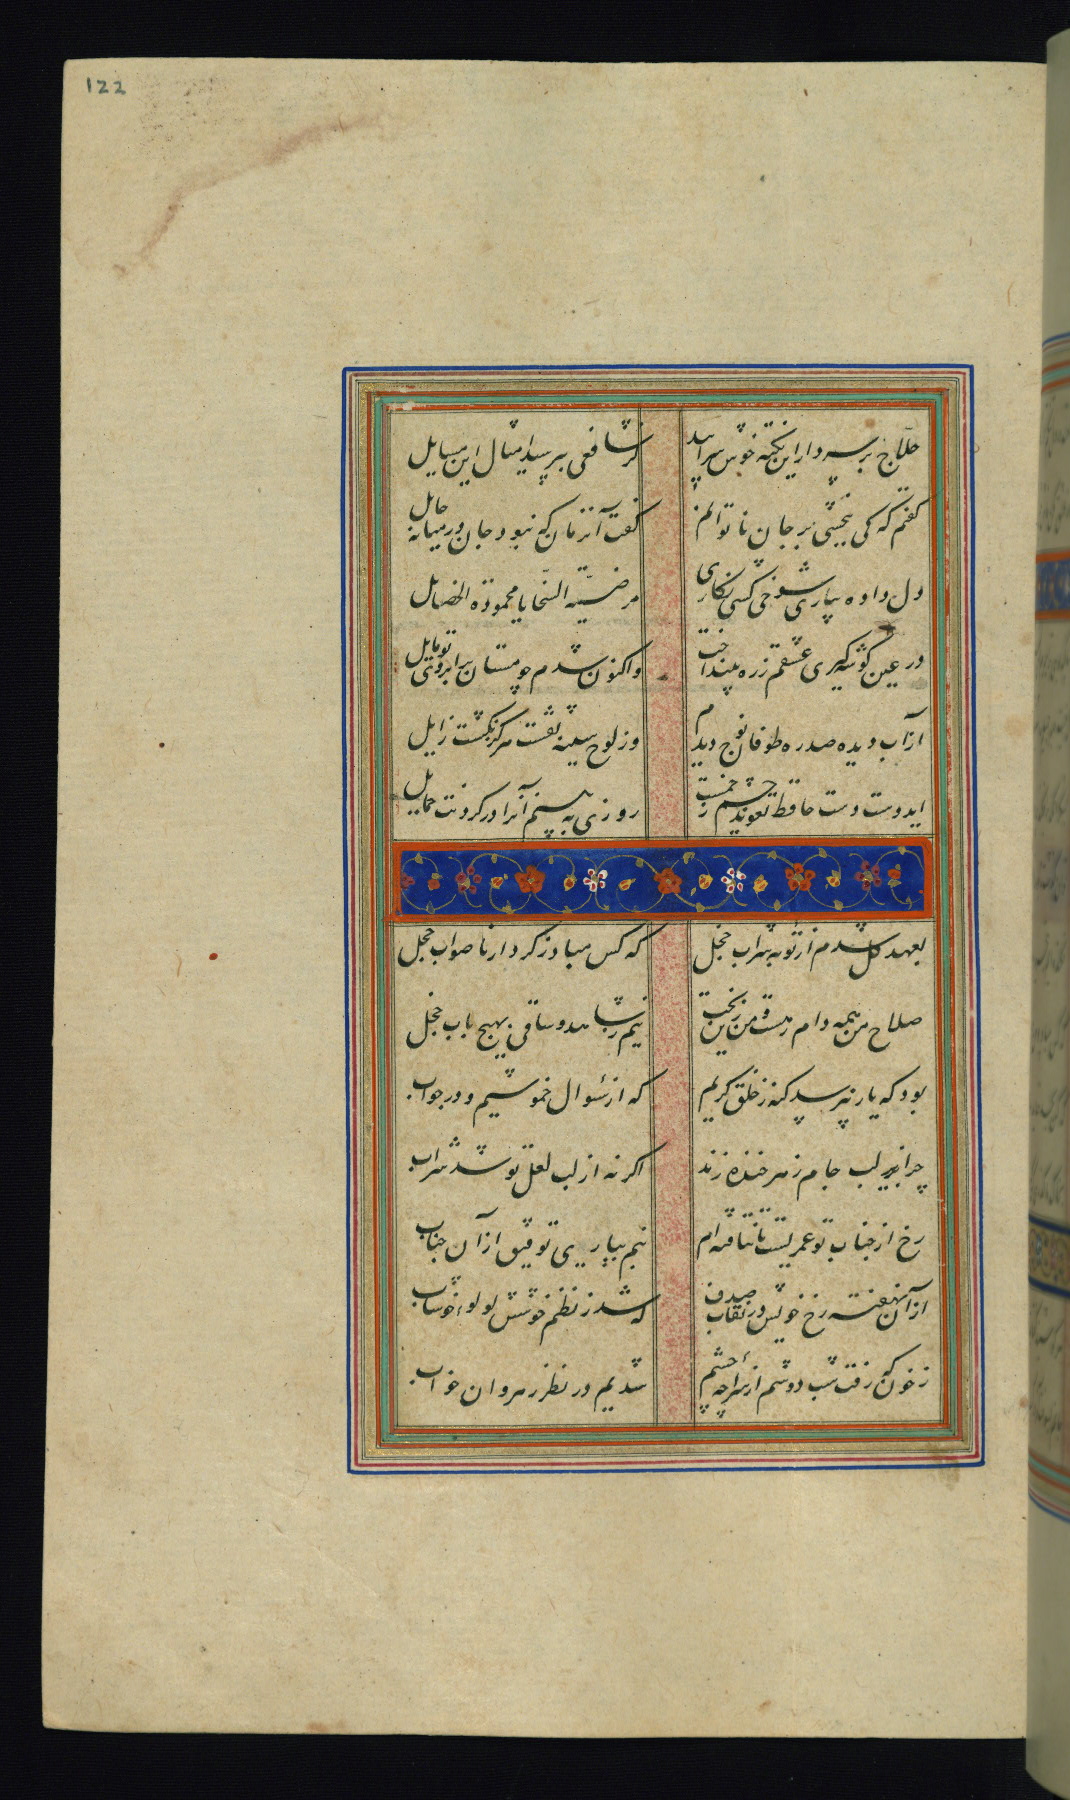 122
حلاج بر سر دار این نکته خوش سراید
از شافعی نپرسید امثال این مسایل
گفتم که کی ببخشی بر جان ناتوانم
گفت آنزمان که نبود جان در میانه حایل
دل داده بیاری شوخی کشی نکاری
مرضیة السجایا محمودة الخصایل
در عین گوشه گیری عشقم ز ره بینداخت
واکنون شدم چو مستان بر ابروی تو مایل
از آب دیده صد ره طوفان نوح دیدم
وز لوح سینه نقشت هرگز نگشت زایل
ایدوست دست حافظ تعوید چشم زخمست
روزی به بینم آنرا در گردنت حمایل
بعهد گل شدم از توبه شراب خجل
که کس مباد ز کردار ناصواب خجل
صلاح من همه دام رهست و من زین
نیم ز شاهد و ساقی بهیچ باب خجل
بود که یار نپرسد گنه ز خلق کریم
که از سئوال خموشیم و در جواب
چرا بزیر لب جام زهر خنده زند
اگر نه از لب لعل تو شد شراب
رخ از جناب تو عمریست تا نتافته ام
نیم بیاریی توفیق از آن جناب
از آن نهفته رخ خویش در نقاب صدف
که شد ز نظم خوشش لولو خوشاب
ز خون که رفت شب دوشم از سراچه چشم
شدیم در نظر رهروان خواب